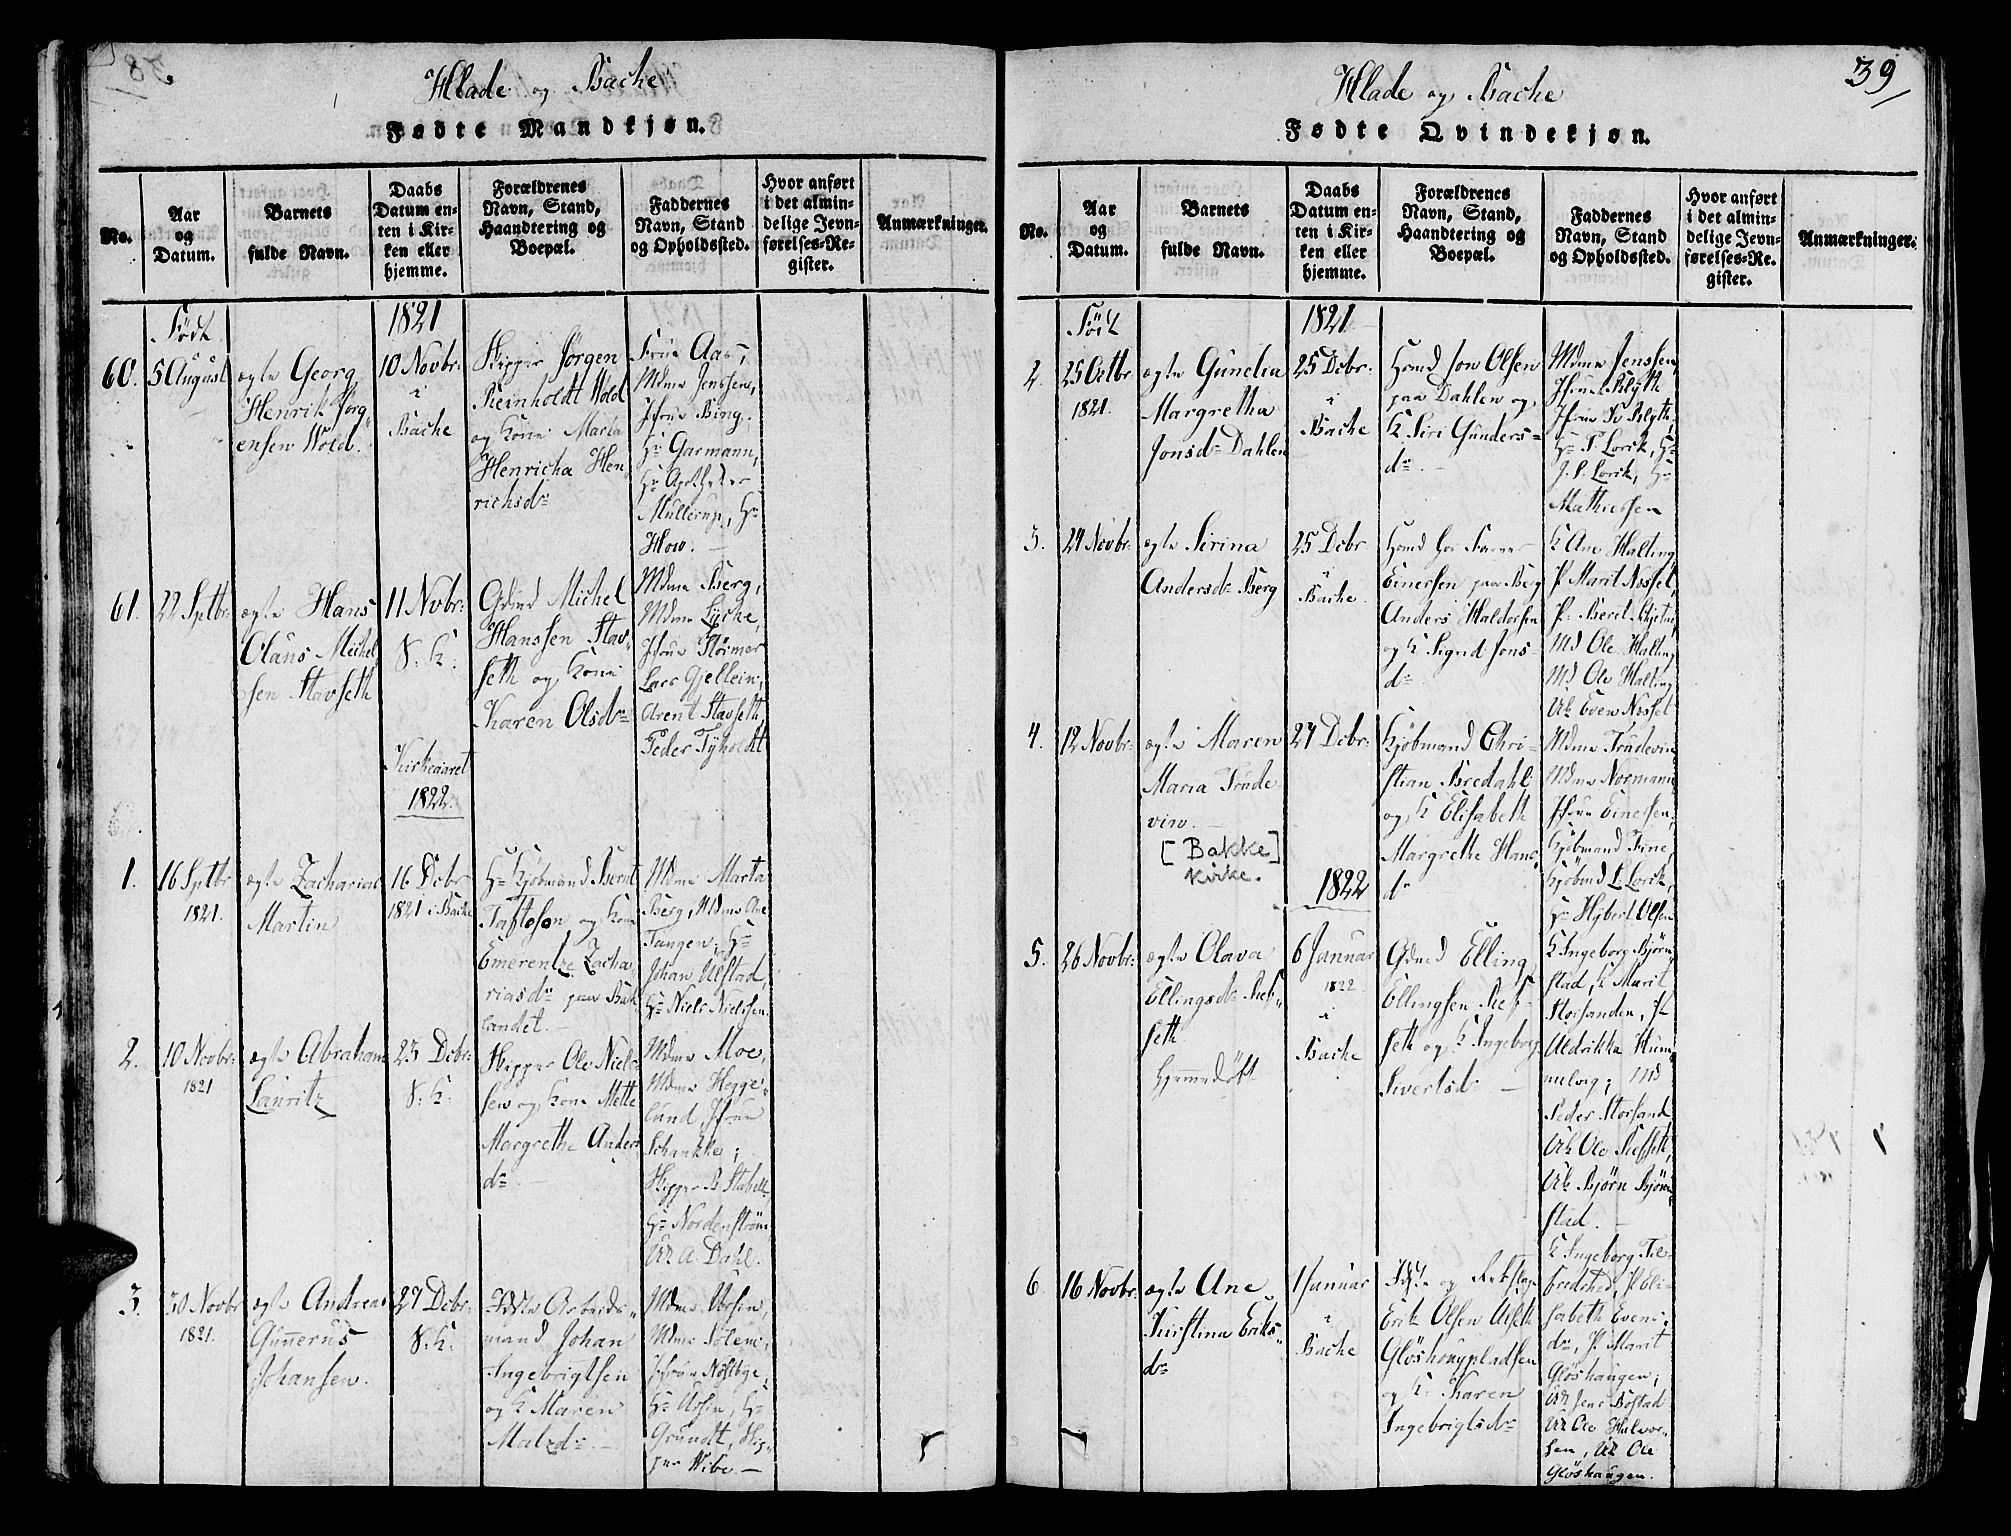 Hlade og Bache
Fødte Mandkjøn.
No.
Aar
og
Datum.
Barnets
fulde Navn.
Daabs
Datum en-
ten i Kir-
ken eller
hjemme.
Forældrenes
Navn, Stand,
Haandtering og
Boepæl.
Faddernes
Navn, Stand
og Opholdssted.
Hvor anført
i det almin-
delige Jevn-
førelses-Re-
gister.
Anmærkninger.
Født
1821
60.
5 August
ægte Georg
Henrik Jørg
ensen Wold.
10 Novbr:
i
Bache
Skipper Jørgen
Reinholdt Wold
og Kone Maria
Henricha Hen
richsdr
Frue Aas,
Mdme Jenssen,
Jfrue Bing,
Hr Garmann,
Hr Apotheker
Müllerup, Hr
How.
61.
22 Septbr:
ægte Hans
Olaus Michel
sen Stavseth
11 Nvbr:
V. K.
Gdmd Michel
Hanssen Stav
seth og Kone
Karen Olsdr
Mdme Berg,
Mdme Lyche,
Jfrue Störmer
Lars Gjellein,
Arent Stavseth,
Peder Tyholdt
Kirkeaaret
1822.
1.
16 Sptbr
1821.
ægte Zacharias
Martin
16 Dcbr
1821 i Bache
Hr Kjöbmand Bernt
og Kone
Emerentze Zacha
riasdr paa Bak
landet.
Mdme Marta
Berg, Mdme Ane
Tangen, Hr
Johan Ulstad,
Hr Niels Nielsen.
2.
10 Novbr:
1821
ægte Abraham
Lauritz
23 Dcbr:
V. K.
Skipper Ole Niel-
sen og Kone Mette
Margrethe Anders
dr
Mdme Moe,
Mdme Hegge
lund, Jfrue
Schankke;
Skipper B Stabell,
Hr Nordenström
Uk A. Dahl.
3.
30 Novbr
1821.
ægte Andreas
Gunnerus
Johansen.
27 Dcbr:
V. K.
Arbeids-
mand Johan
Ingebrigtsen
og K Maren
Matzdr
Mdme Ursin,
Mdme Solem,
Jfrue
Hr Ursin, Hr
Grundt, Skip-
per Wibe.
39
Hlade og Bache
Fødte Qvindekjøn.
No.
Aar
og
Datum.
Barnets
fulde Navn.
Daabs
Datum en-
ten i Kir-
ken eller
hjemme.
Forældrenes
Navn, Stand,
Haandtering og
Boepæl.
Faddernes
Navn, Stand
og Opholdssted.
Hvor anført
i det almin-
delige Jevn-
førelses-Re-
gister.
Anmærkninger.
Født
1821
2.
25 Octbr
1821.
ægte Gunelia
Margretha
Jonsdr Dahlen
25 Dcbr:
i
Bache
Hmd Jon Olsen
paa Dahlen og
K Siri Gunders-
dr
Mdme Jenssen,
Jfrue Blyth
Jfrue Blyth,
Hr T Lorck, Hr
J. L. Lorck, Hr
Mathiessen
3.
24 Novbr:
ægte Sirina
Andersdr Berg
25 Dcbr
i
Bache
Hmd hos
Einersen paa Berg
Anders Haldorsen
og K Signd Jons-
dr
K Ane Halting
P Marit Nessel,
P: Berel
Md Ole Halting
Md Ole Halting
Uk Even Nessel
4.
12 Novbr:
ægte Maren
Maria Trude
vin.
[ Bakke ]
kirke.
27 Dcbr:
Kjöbmand Chri-
stian Bredahl
og K Elisabeth
Margrethe Hans
dr
Mdme Trudevin
Mdme Normann
Jfrue Einersen,
Kjöbmand Trine,
Kjöbmd L: Lorck,
Hr Hybert Olsen
1822
5.
26 Novbr:
ægte Olava
Ellingsdr Ref-
seth
6 Januar
1822
i
Bache
Gdmd Elling
Ellingsen Ref-
seth og K Ingeborg
Sivertsdr
K Ingeborg Bjørn
stad, K Marit
Storsanden, P
Uldrikka Hum
melvig; Md
Peder Storsand
Uk Ole Refseth,
Uk Bjørn Bjørn
stad.
6.
16 Novbr:
ægte Ane
Kirstina Eriks
dr
1 Januar
i
Bache
og
Erik Olsen
Glöshaugpladsen
og K. Karen
Ingebrigtsdr
K Ingeborg Til-
fredshed, P Eli-
sabeth Evens
dr, P. Marit
Glöshaugen;
Uk Jens Bostad
Uk Ole Halvor-
sen, Uk Ole
Glöshaugen.